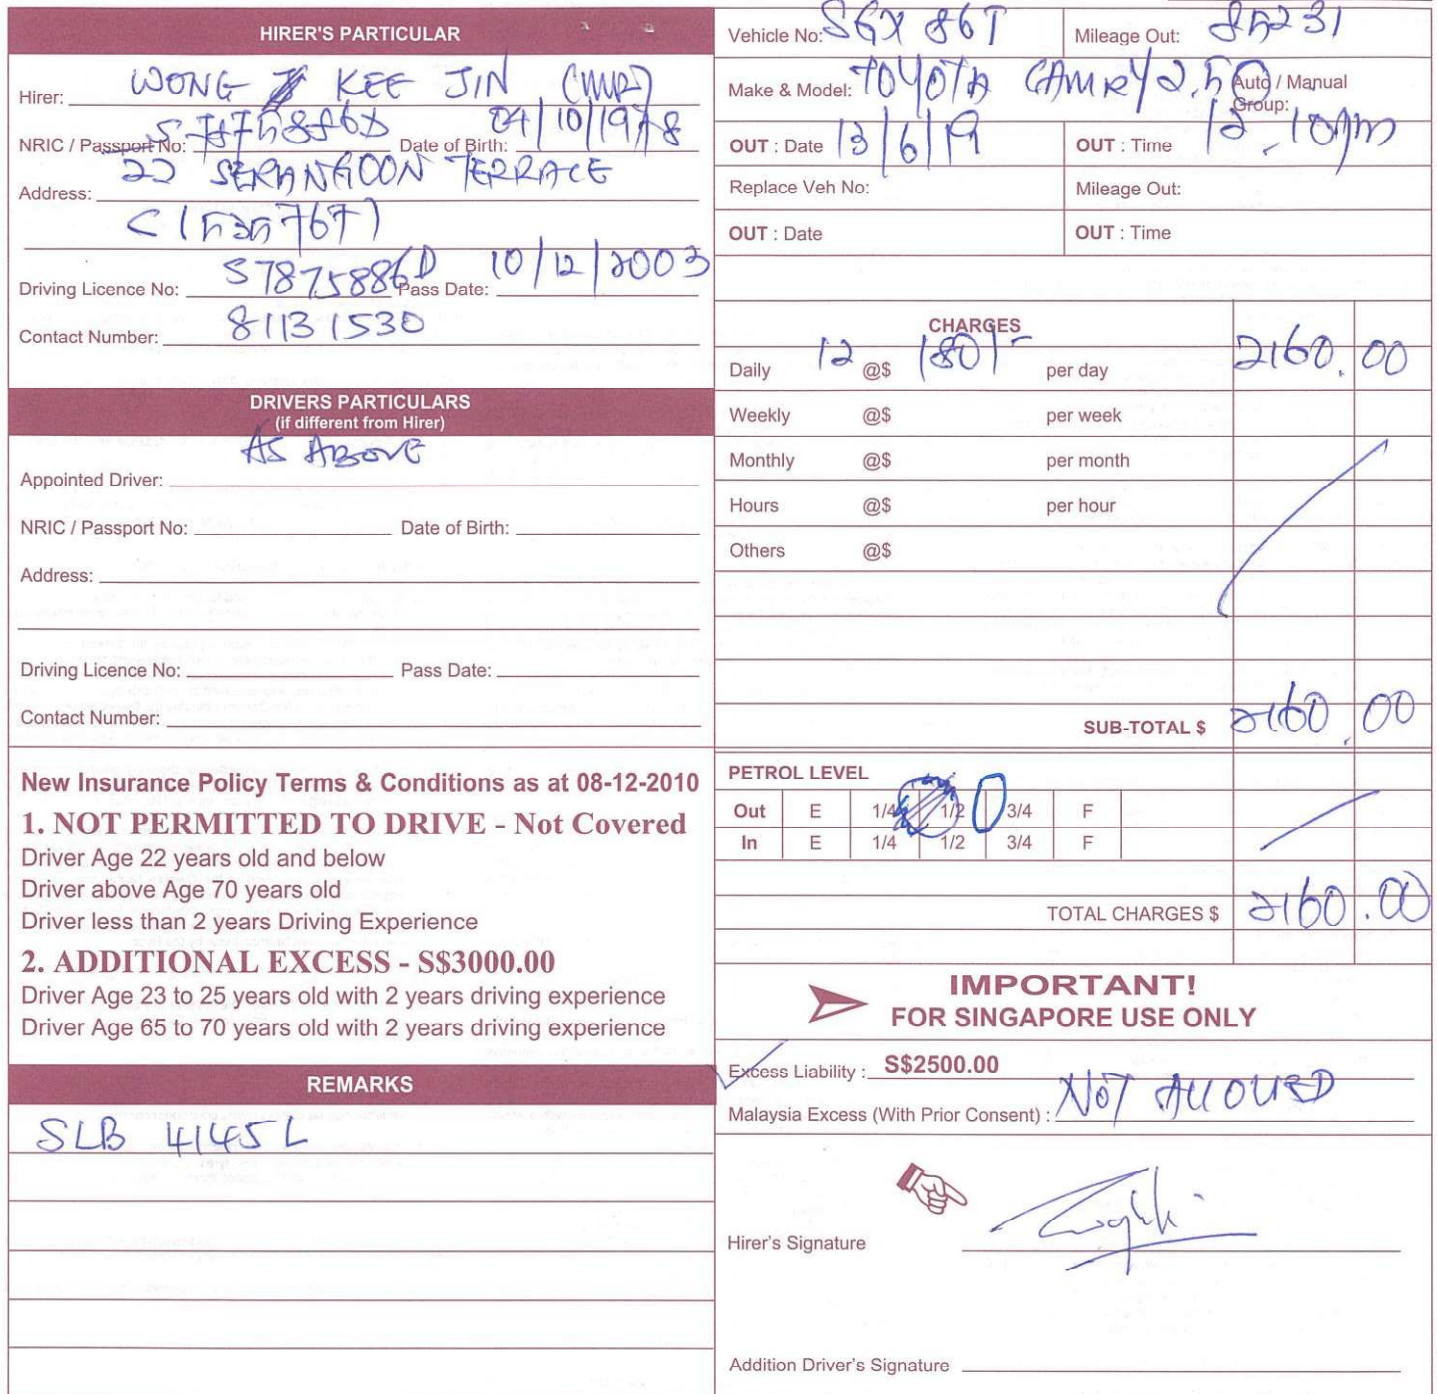 HIRER'S PARTICULAR
Hirer: WONG KEE JIN (MR)
NRIC / Passport No: S7875886D Date of Birth: 04/10/1978
Address: 22 SERANGOON TERRACE
S(535767)
Driving Licence No: S7875886D Pass Date: 10/12/2003
Contact Number: 81131530
DRIVERS PARTICULARS
(if different from Hirer)
AS ABOVE
Appointed Driver:
NRIC / Passport No: Date of Birth:
Address:
Driving Licence No: Pass Date:
Contact Number:
New Insurance Policy Terms & Conditions as at 08-12-2010
1. NOT PERMITTED TO DRIVE - Not Covered
Driver Age 22 years old and below
Driver above Age 70 years old
Driver less than 2 years Driving Experience
2. ADDITIONAL EXCESS - S$3000.00
Driver Age 23 to 25 years old with 2 years driving experience
Driver Age 65 to 70 years old with 2 years driving experience
REMARKS
SLB 4145L
Vehicle No: SGX 86T Mileage Out: 85231
Make & Model: TOYOTA CAMRY 2.5 Auto / Manual
Group:
OUT : Date 13/6/19 OUT : Time 12.10pm
Replace Veh No: Mileage Out:
OUT : Date OUT : Time
CHARGES
Daily 12 @$ 180/- per day 2160.00
Weekly @$ per week
Monthly @$ per month
Hours @$ per hour
Others @$
SUB-TOTAL $ 2160.00
PETROL LEVEL
Out E 1/4 1/2 3/4 F
In E 1/4 1/2 3/4 F
TOTAL CHARGES $ 2160.00
IMPORTANT!
FOR SINGAPORE USE ONLY
Excess Liability : S$2500.00
Malaysia Excess (With Prior Consent) : NOT ALLOWED
Hirer's Signature
Addition Driver's Signature